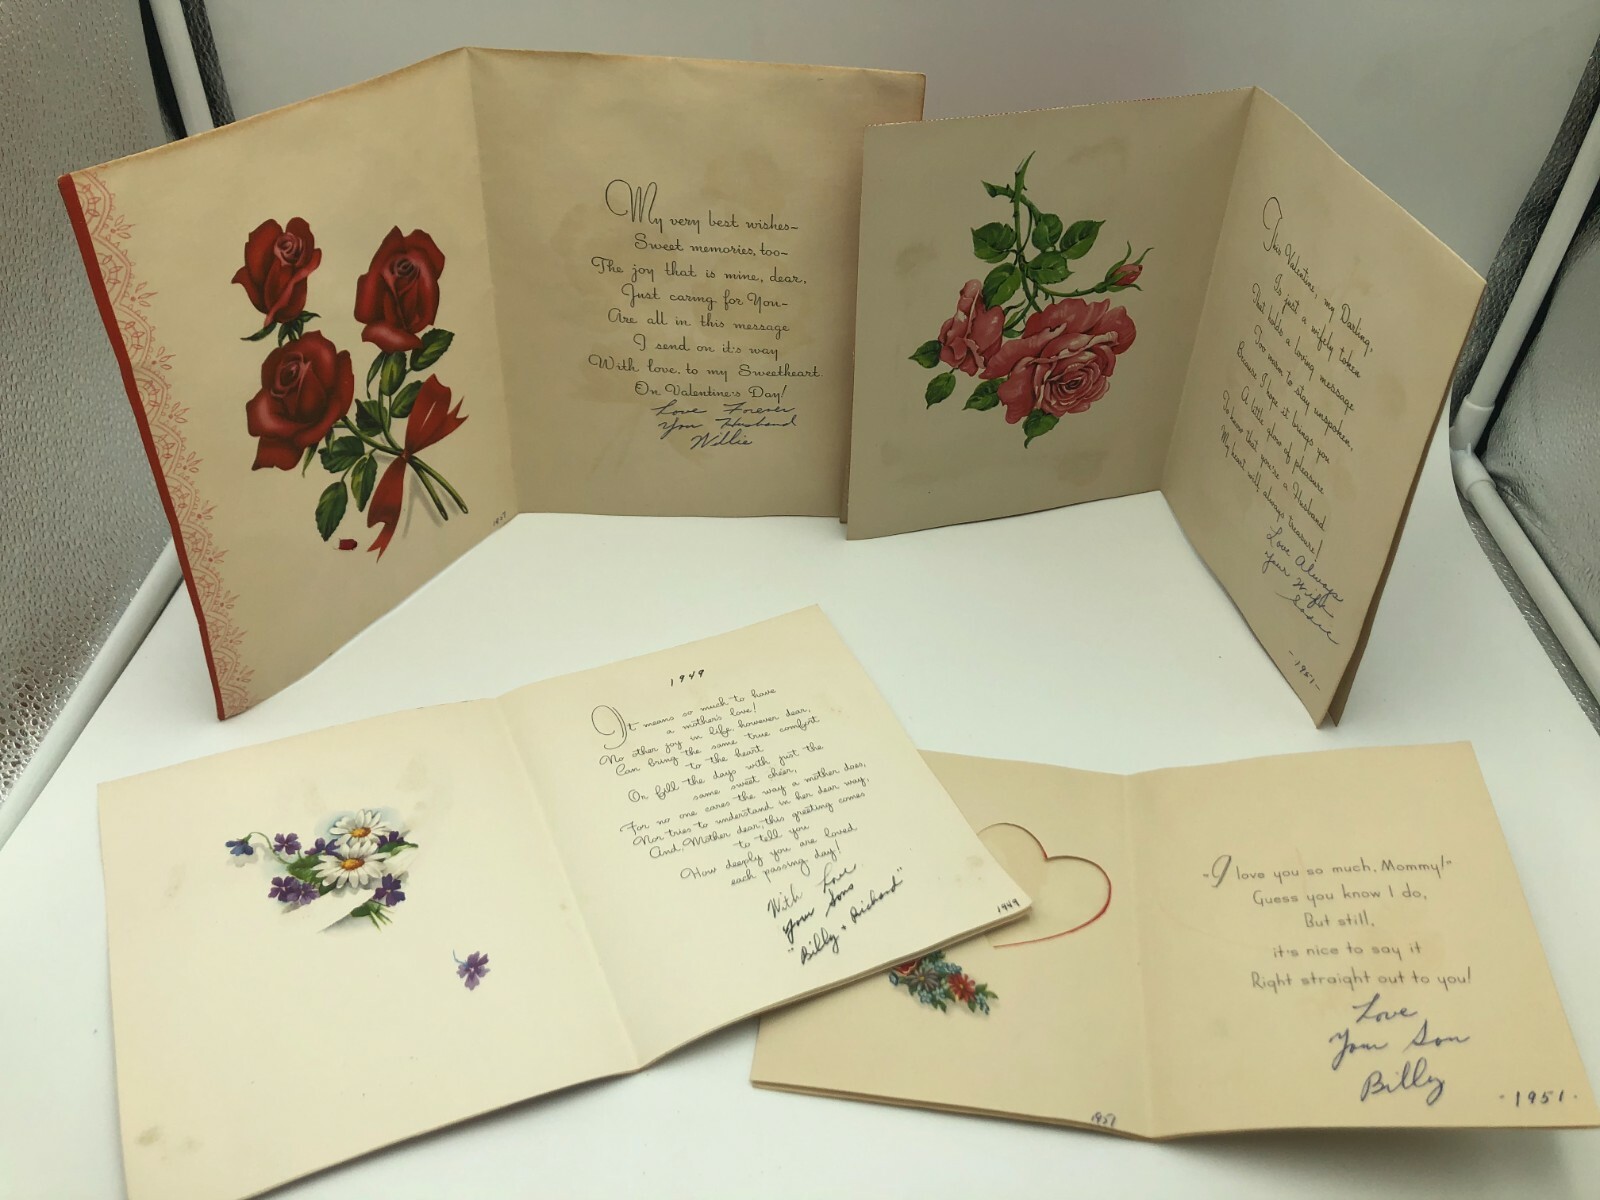 My very best wishes–
Sweet memories, too–
The joy that is mine, dear,
Just caring for You–
Are all in this message
I send on it's way
With love, to my Sweetheart
On Valentine's Day!
Love Forever
Your Husband
Willie
This Valentine, my Darling,
Is just a wifely token
That holds a loving message
Too warm to stay unspoken,
Because I hope it brings you
A little glow of pleasure
To know that you're a Husband
My heart will always treasure!
Love Always
Your Wife
-1951-
1949
It means so much to have
a mother's love!
No other joy in life, however dear,
Can bring the same true comfort
to the heart
Or fill the days with just the
same sweet cheer,
For no one cares the way a mother does,
Nor tries to understand in her dear way,
And, Mother dear, this greeting comes
to tell you
How deeply you are loved
each passing day!
With Love
Your Sons
"Billy + Richard"
1949
"I love you so much, Mommy!"
Guess you know I do,
But still,
it's nice to say it
Right straight out to you!
Love
Your Son
Billy
-1951-
1951